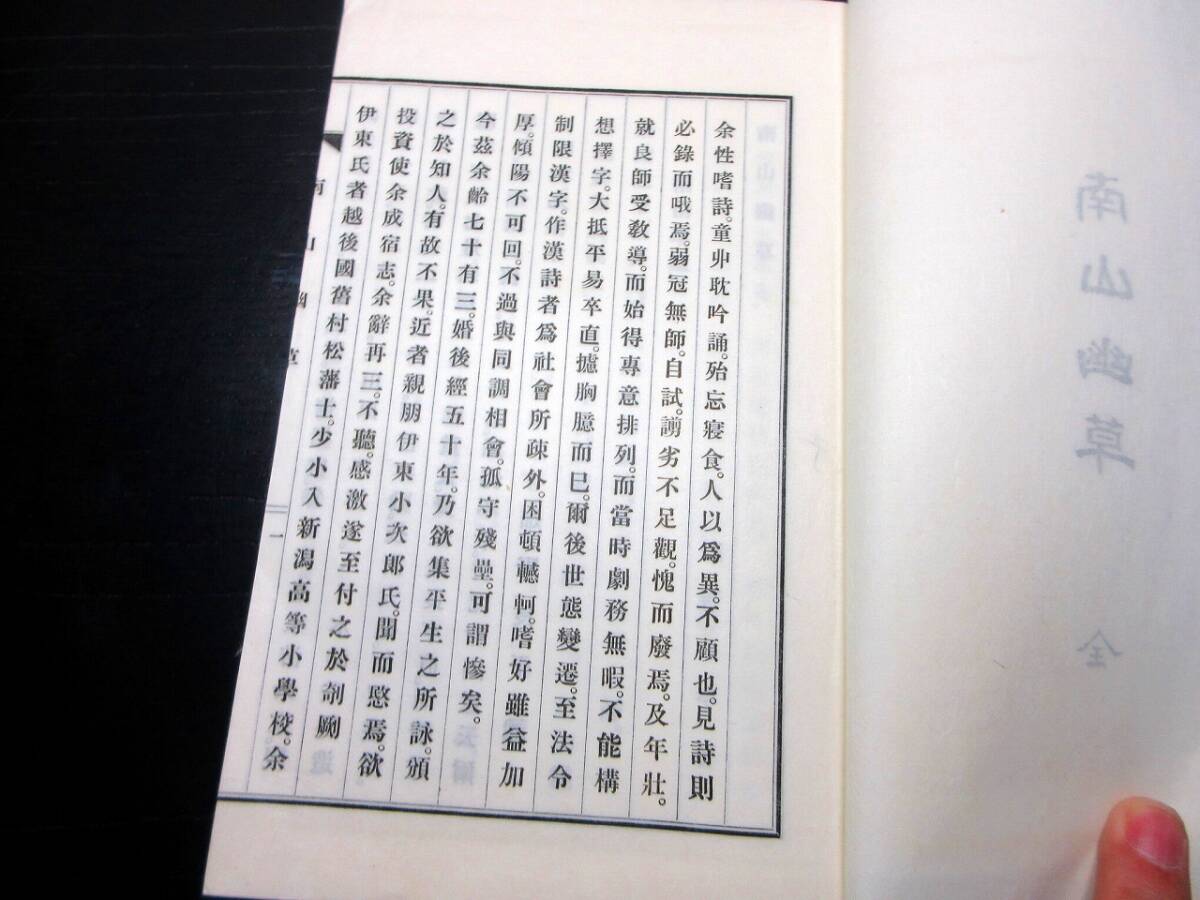 南山幽草 全
余性嗜詩。童丱耽吟誦。殆忘寢食。人以爲異。不顧也。見詩則
必錄而哦焉。弱冠無師。自試。謭劣不足觀。愧而廢焉。及年壯。
就良師受敎導。而始得專意排列。而當時劇務無暇。不能構
想擇字。大抵平易卒直。攄胸臆而已。爾後世態變遷。至法令
制限漢字。作漢詩者爲社會所疎外。困頓轗軻。嗜好雖益加
厚。傾陽不可回。不過與同調相會。孤守殘壘。可謂慘矣。
今茲余齡七十有三。婚後經五十年。乃欲集平生之所詠。頒
之於知人。有故不果。近者親朋伊東小次郎氏。聞而愍焉。欲
投資使余成宿志。余辭再三。不聽。感激遂至付之於剞劂
伊東氏者越後國舊村松藩士。少小入新潟高等小學校。余
南山幽草
一